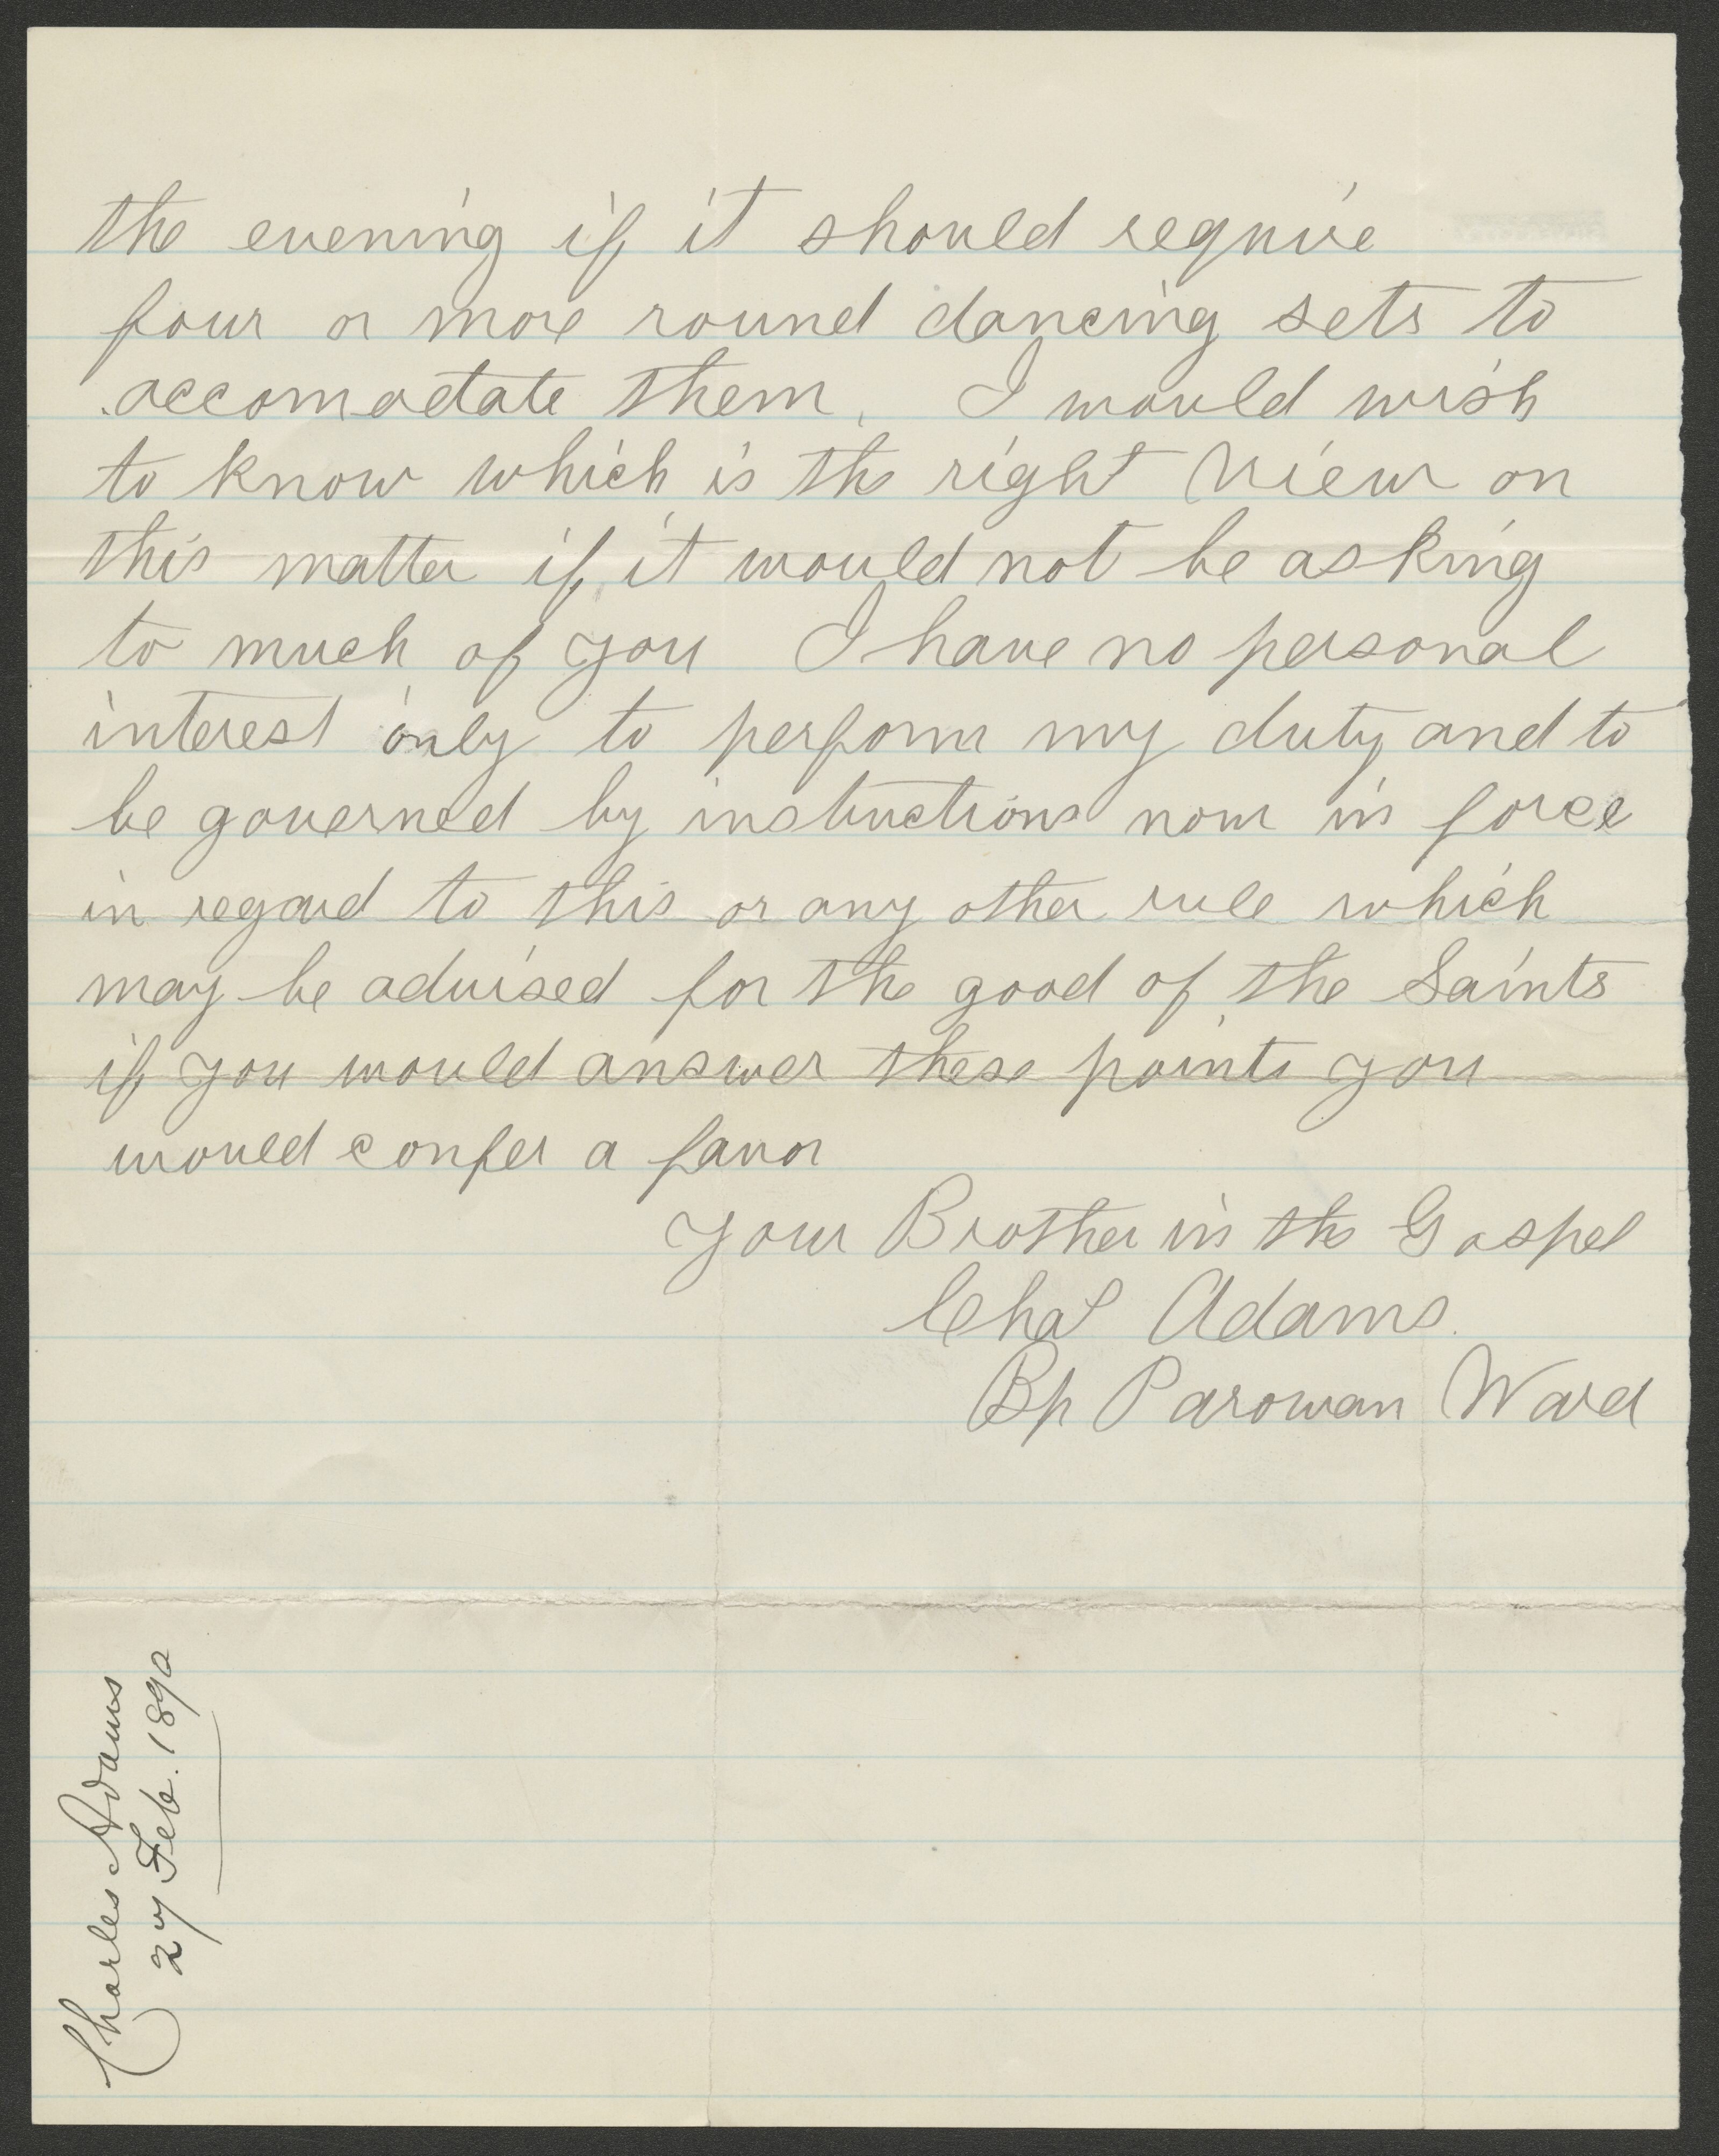 the evening if it should require
four or more round dancing sets to
accomodate them. I would wish
to know which is the right view on
this matter if it would not be asking
to much of you I have no personal
interest only to perform my duty and to
be governed by instructions now in force
in regard to this or any other rule which
may be advised for the good of the Saints
if you would answer these points you
would confer a favor
Your Brother in the Gospel
Chas Adams
Bp Parowan Ward
Charles Adams
27 Feb. 1890